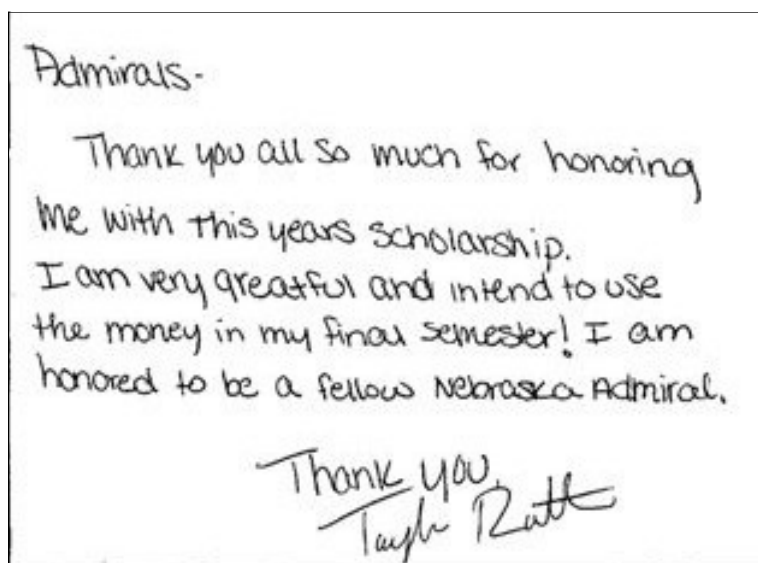 Admirals-
Thank you all so much for honoring
me with this years scholarship.
I am very greatful and intend to use
the money in my final semester! I am
honored to be a fellow Nebraska Admiral.
Thank you,